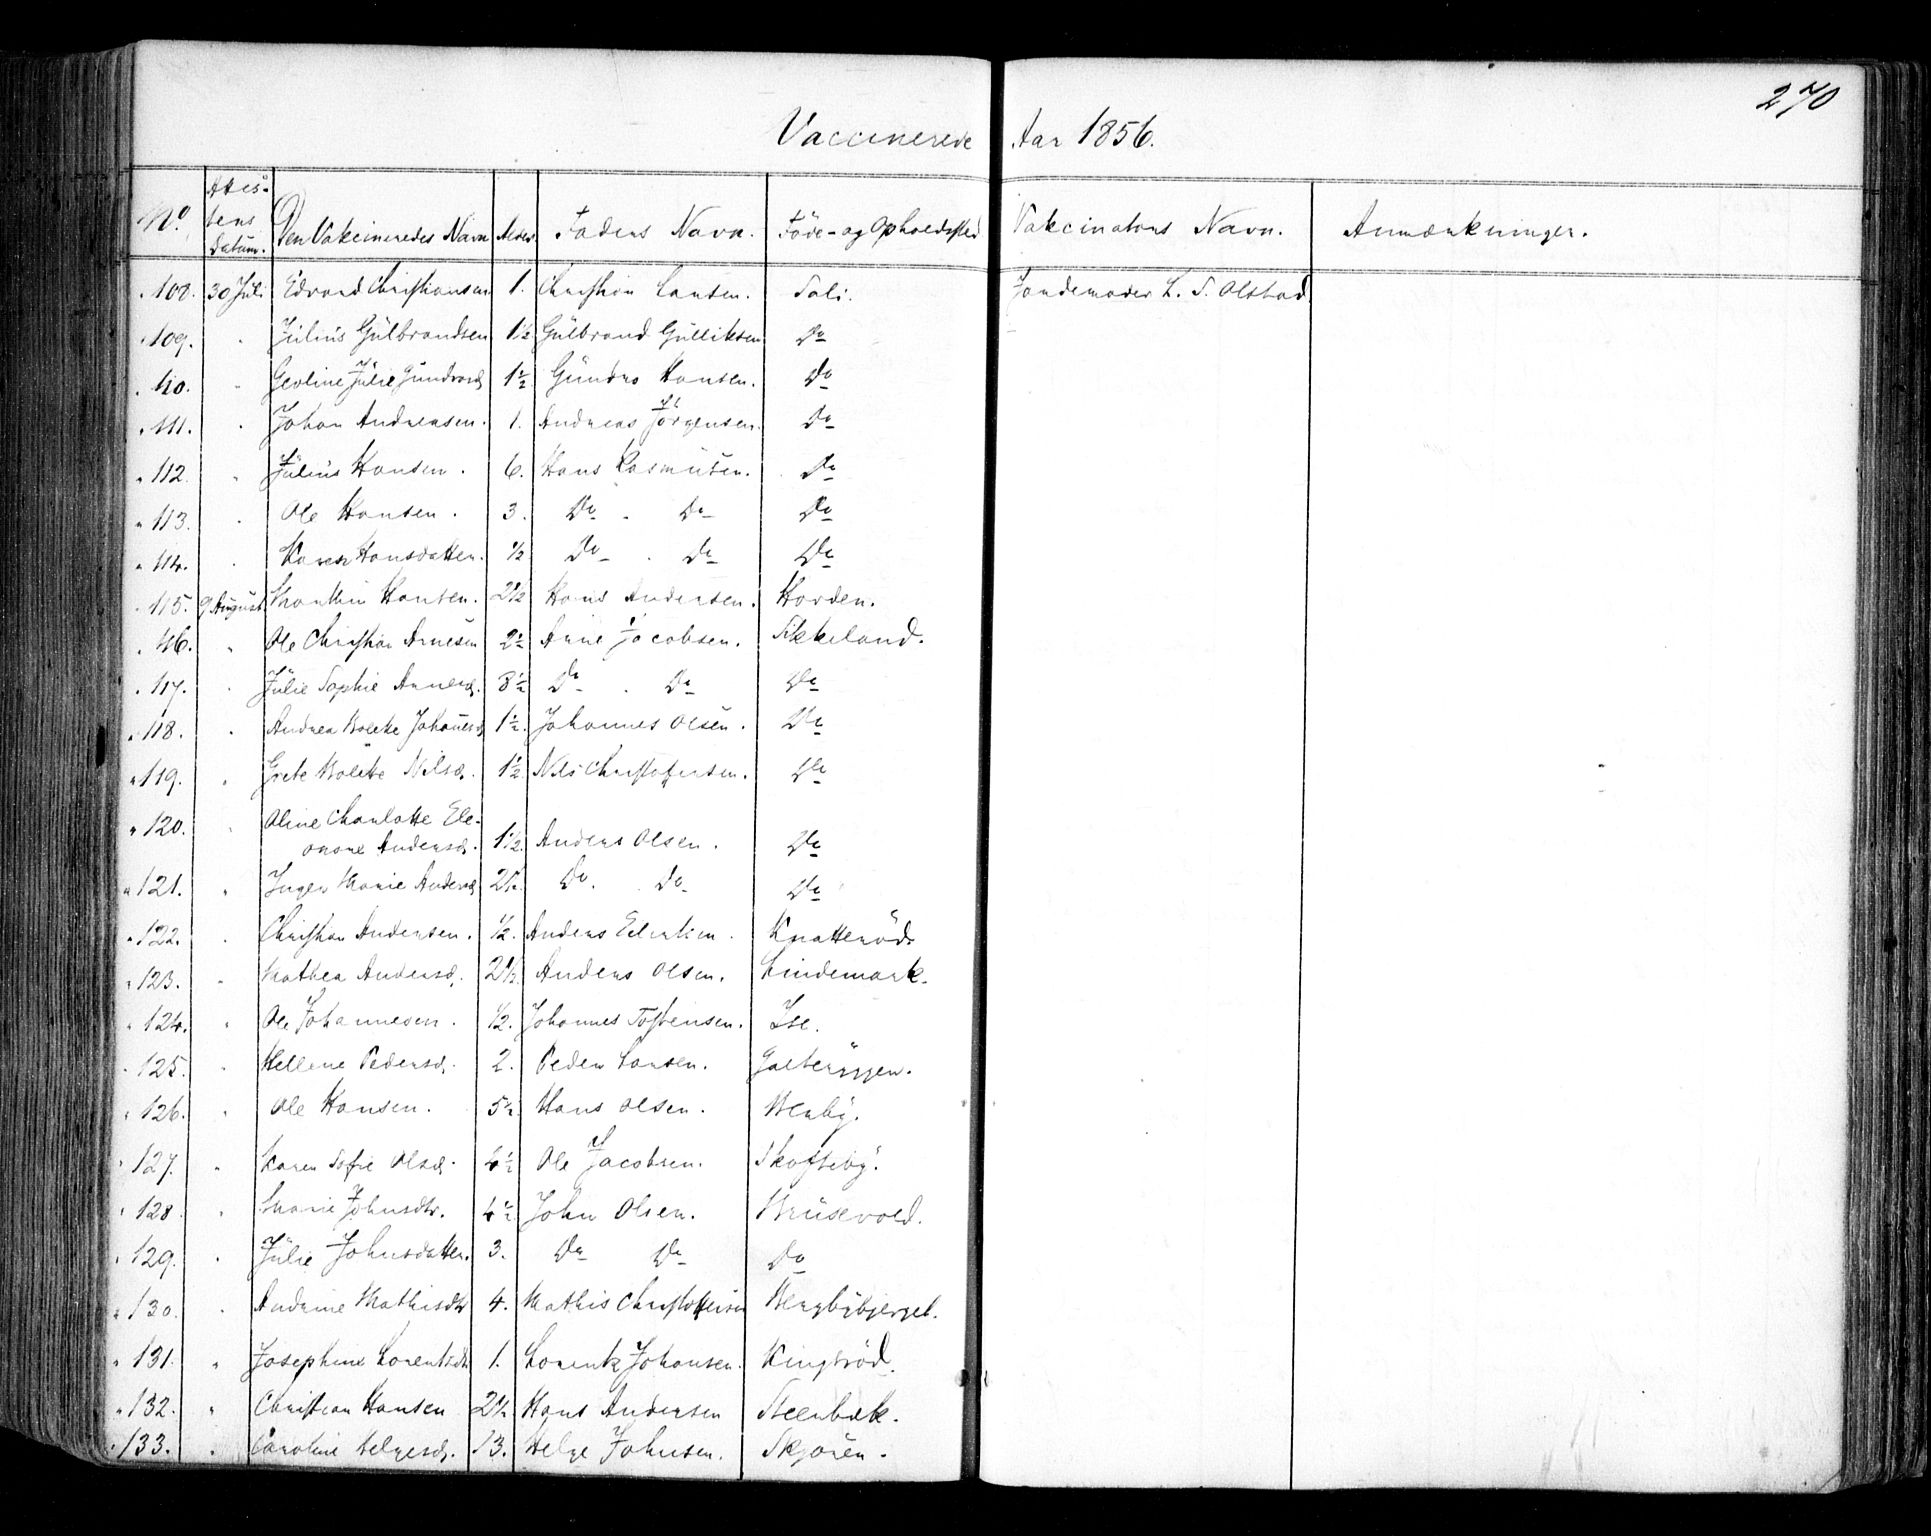 270
Vaccinerede Aar 1856.
No. Attestens Datum. Den Vakcineredes Navn Alder. Faders Navn. Föde- og Opholdssted Vakcinatørs Navn. Anmærkninger.
108. 30 Juli Edvard Christiansen 1. Christian Larsen. Sali. Jordemoder L. S. Olstad
109. " Julius Gulbrandsen 1½ Gulbrand Gulliksen Do
110. " Julie 1½ Hansen. Do
111. " Johan Andreasen. 1. Andreas Jörgensen. Do
112. " Julius Hansen. 6. Hans Rasmusen. Do
113. " Ole Hansen. 3. Do Do Do
114. " Karen Hansdatter. ½ Do Do Do
115. 9 August Hansen. 2½ Hans Andersen. Horden.
116. " Ole Christian Arnesen 2½ Arne Jacobsen. Sikkeland.
117. " Julie Sophie Arnesd. 8½ Do Do Do
118. " Andrea Bolette Johanesd. 1½. Johannes Olsen. Do
119. " Grete Bolette Nilsd. 1½ Nils Christofersen. Do
120. " Oline Charlotte Ele-
onore Andersd. 1½. Anders Olsen. Do
121. " Inger Marie Andersd. 2½. Do. Do. Do
122. " Christian Andersen. ½. Anders Eilertsen. Knatteröd.
123. " Mathea Andersd. 2½. Anders Olsen. Lindemark.
124. " Ole Johannesen. ½. Johannes Tostensen. Ise.
125. " Hellene Pedersd. 2. Peder Larsen. Galteryggen.
126. " Ole Hansen. 5½ Hans Olsen.
127. " Karen Sofie Olsd. 4½ Ole Jacobsen. Skofteby.
128. " Marie Johnsdtr. 4½ John Olsen. Brusevold.
129. " Julie Johnsdatter. 3. Do Do Do
130. " Andrine Mathisdtr 4. Mathis Christoffersen Bergbybjerget.
131. " Josephine Lorentsdtr 1. Lorentz Johansen. Kingsröd.
132. " Christian Hansen 2½ Hans Andersen Steenbek.
133. " Caroline Helgesd. 13. Helge Johnsen. Skjören.